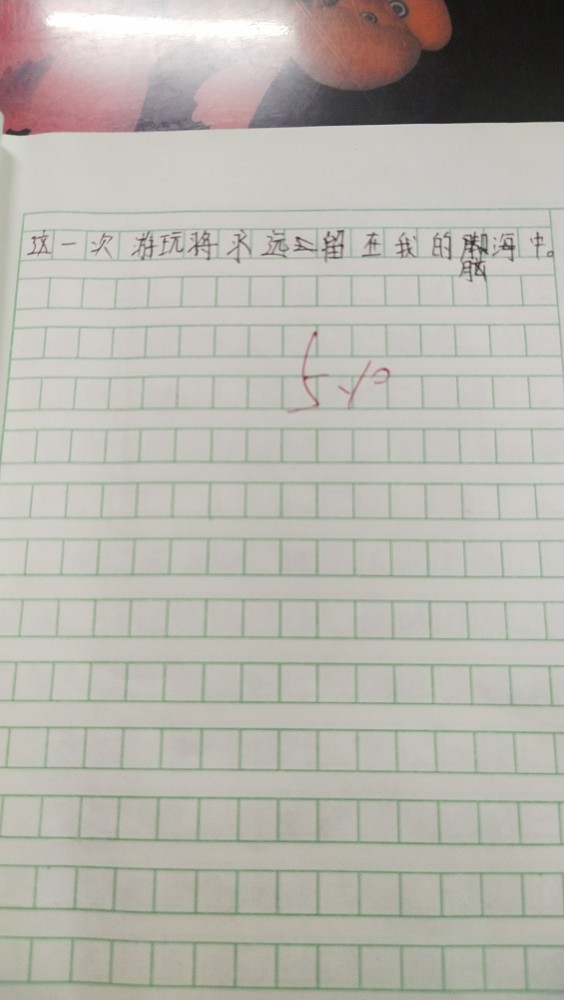 这一次游玩将永远留在我的脑海中。